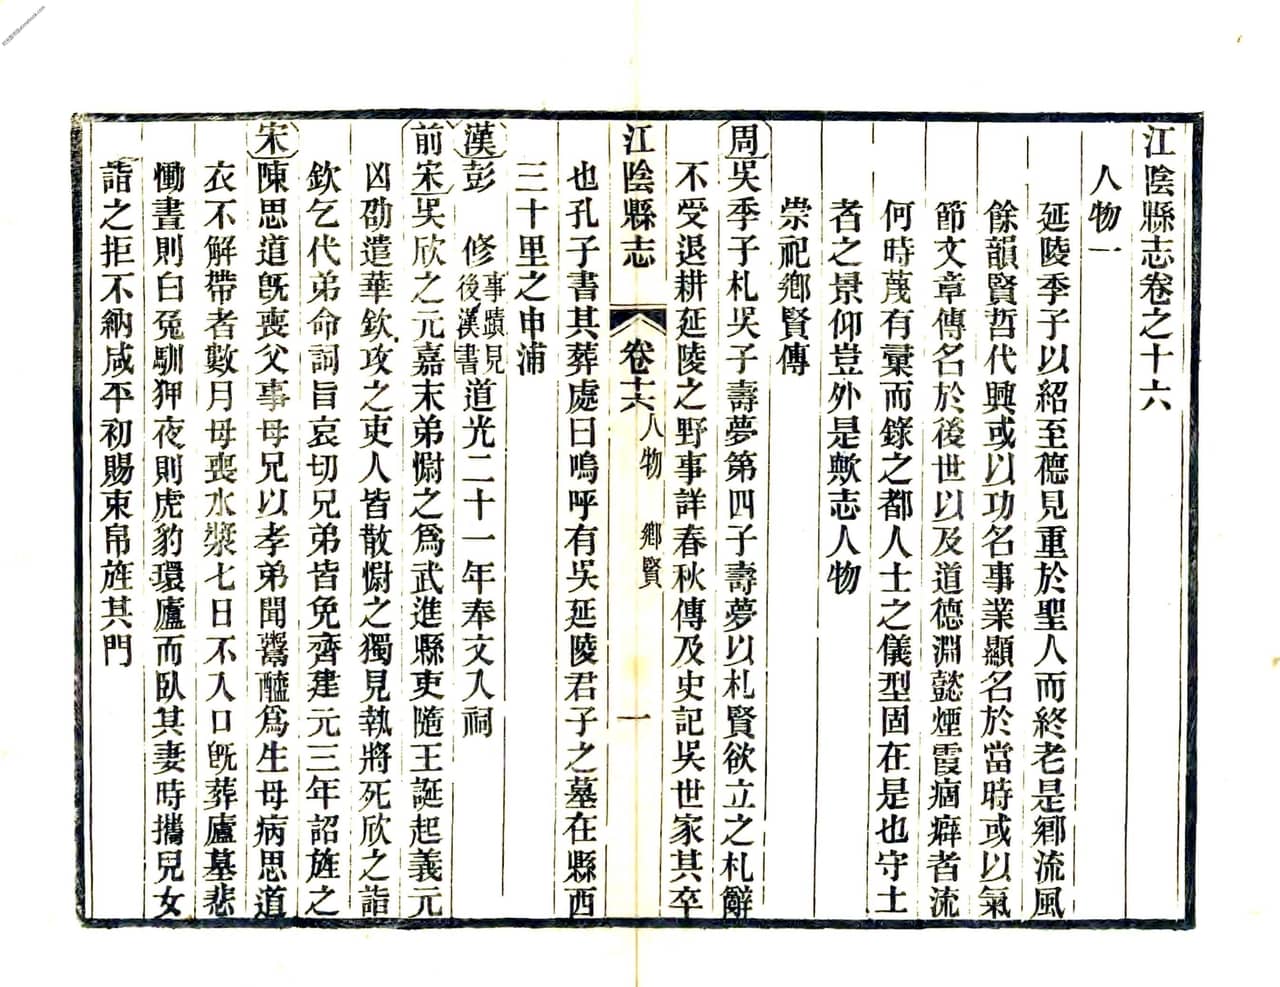 江陰縣志卷之十六
人物一
延陵季子以紹至德見重於聖人而終老是鄉流風
餘韻賢哲代興或以功名事業顯名於當時或以氣
節文章傳名於後世以及道德淵懿煙霞痼癖者流
何時蔑有彙而錄之都人士之儀型固在是也守土
者之景仰豈外是歟志人物
崇祀鄉賢傳
周吳季子札吳子壽夢第四子壽夢以札賢欲立之札辭
不受退耕延陵之野事詳春秋傳及史記吳世家其卒
江陰縣志 卷十六 人物 鄉賢 一
也孔子書其葬處曰嗚呼有吳延陵君子之墓在縣西
三十里之申浦
漢彭 修事蹟見後漢書道光二十一年奉文入祠
前宋吳欣之元嘉末弟慰之為武進縣吏隨王誕起義元
凶劭遣華欽攻之吏人皆散慰之獨見執將死欣之詣
欽乞代弟命詞旨哀切兄弟皆免齊建元三年詔旌之
宋陳思道既喪父事母兄以孝弟聞鬻醯為生母病思道
衣不解帶者數月母喪水漿七日不入口既葬廬墓悲
慟晝則白兔馴狎夜則虎豹環廬而臥其妻時攜兒女
詣之拒不納咸平初賜束帛旌其門